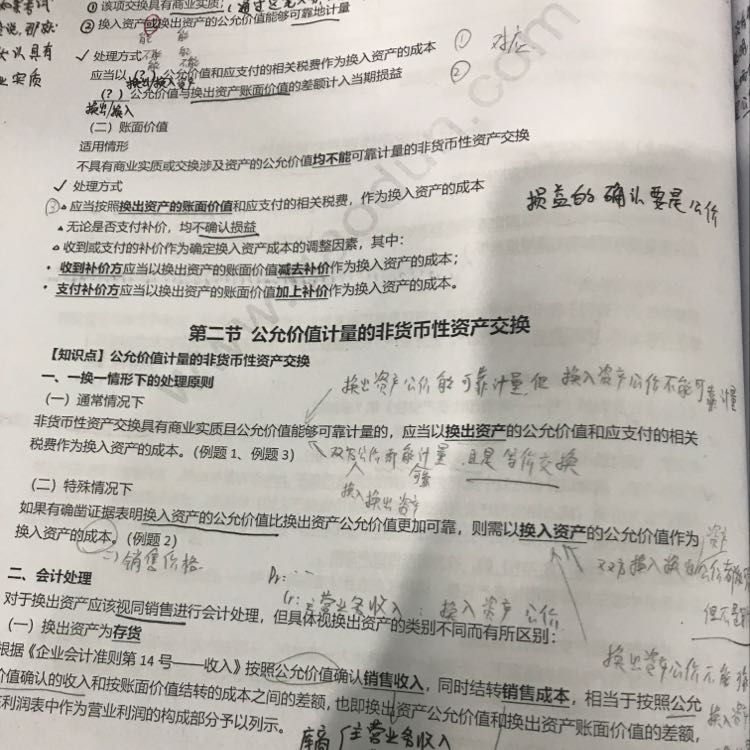 ①该项交换具有商业实质;
②换入资产或换出资产的公允价值能够可靠地计量
能 能
不能 能
能 不能
✓ 处理方式
应当以(?)公允价值和应支付的相关税费作为换入资产的成本 ① 对应
换出/换入资产
(?)公允价值与换出资产账面价值的差额计入当期损益 ②
换出/换入
(二)账面价值
适用情形
不具有商业实质或交换涉及资产的公允价值均不能可靠计量的非货币性资产交换
✓ 处理方式
③ 应当按照换出资产的账面价值和应支付的相关税费,作为换入资产的成本
损益的确认要是公价
无论是否支付补价,均不确认损益
收到或支付的补价作为确定换入资产成本的调整因素,其中:
· 收到补价方应当以换出资产的账面价值减去补价作为换入资产的成本;
· 支付补价方应当以换出资产的账面价值加上补价作为换入资产的成本。
第二节 公允价值计量的非货币性资产交换
【知识点】公允价值计量的非货币性资产交换
一、一换一情形下的处理原则
换出资产公价能可靠计量,但换入资产公价不能可靠计量
(一)通常情况下
非货币性资产交换具有商业实质且公允价值能够可靠计量的,应当以换出资产的公允价值和应支付的相关
税费作为换入资产的成本。(例题 1、例题 3)
双方公价可靠计量 且是等价交换
换入换出资产
(二)特殊情况下
如果有确凿证据表明换入资产的公允价值比换出资产公允价值更加可靠,则需以换入资产的公允价值作为
换入资产的成本。(例题 2)
销售价格
双方换入换出公价都
但不是
二、会计处理
Dr: ……
Cr: 主营业务收入: 换入资产公价
对于换出资产应该视同销售进行会计处理,但具体视换出资产的类别不同而有所区别:
(一)换出资产为存货
换出资产公价不能
根据《企业会计准则第 14 号——收入》按照公允价值确认销售收入,同时结转销售成本,相当于按照公允
价值确认的收入和按账面价值结转的成本之间的差额,也即换出资产公允价值和换出资产账面价值的差额,
换入资产
利润表中作为营业利润的构成部分予以列示。
库商 主营业务收入